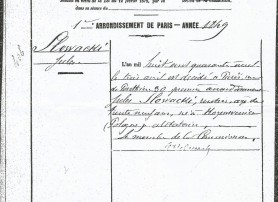 dans sa séance du
1er ARRONDISSEMENT DE PARIS — ANNÉE 1849
Slowacki
Jules
L'an mil huit cent quarante neuf
le trois avril est décédé à Paris, rue
de Ponthieu 30 premier arrondissement
Jules Slowacki, rentier, age de
trente neuf ans, né à
Pologne, célibataire
Le membre de la Commission